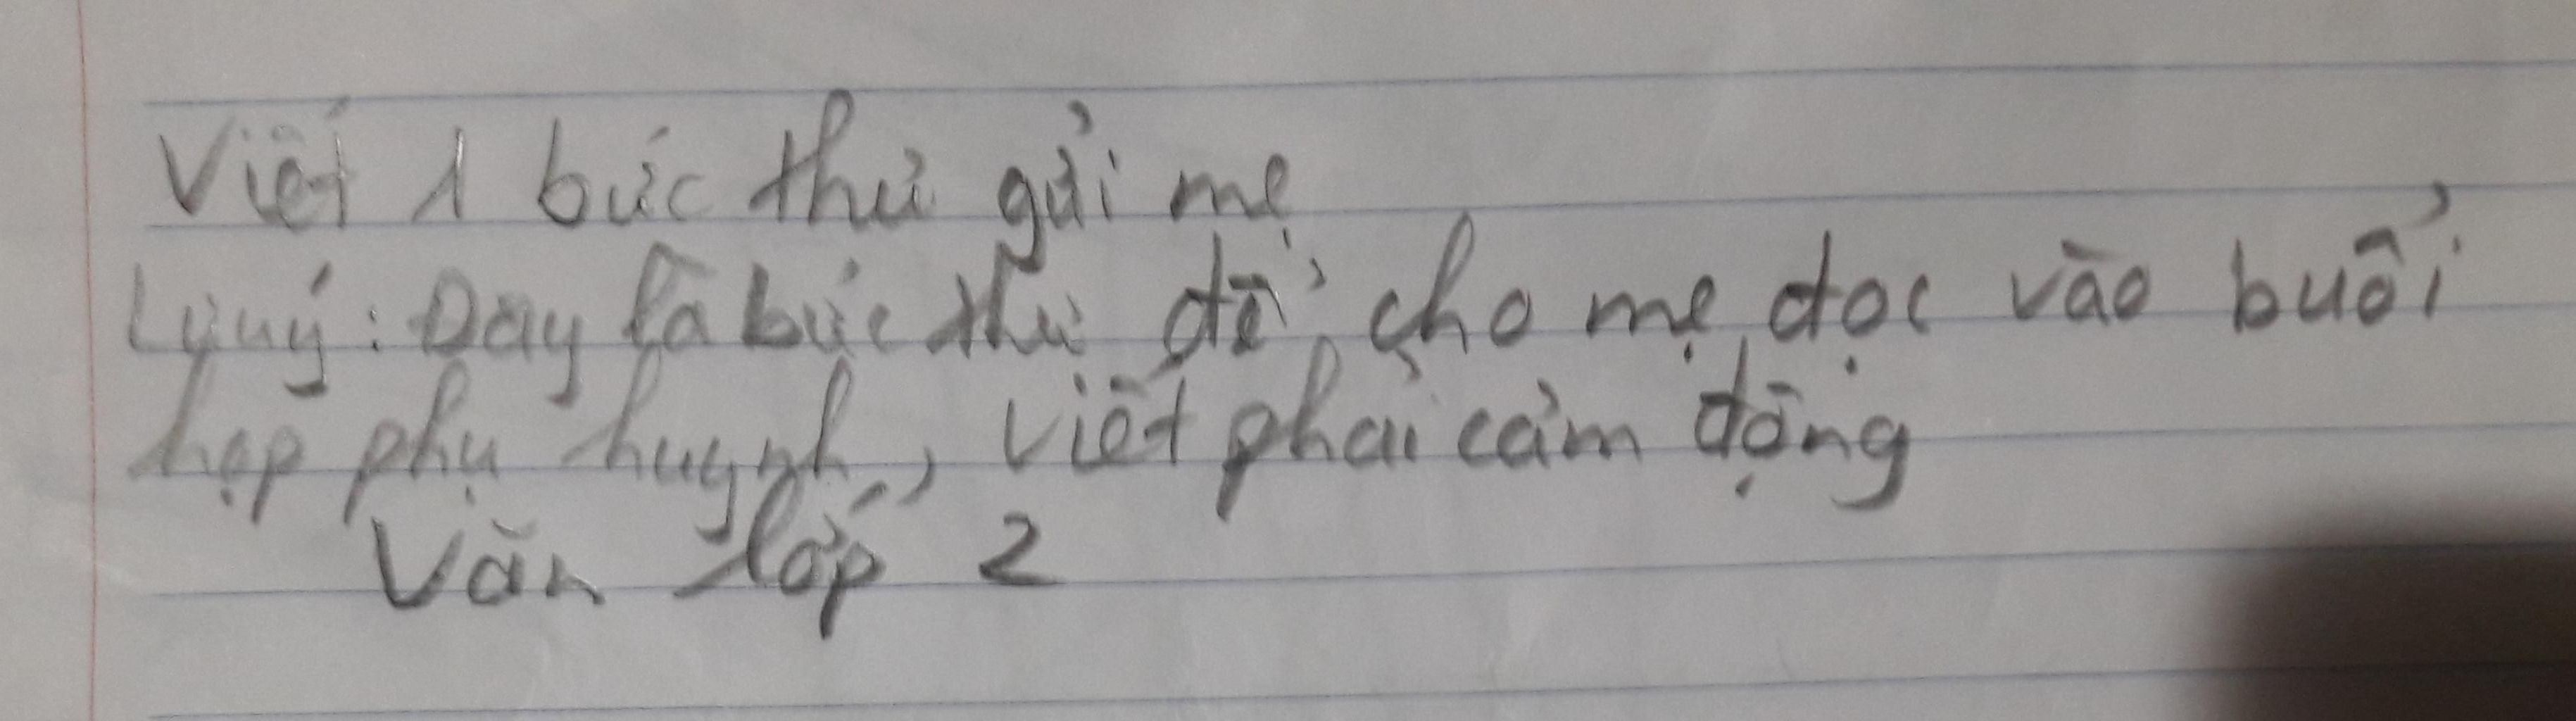 Viết 1 bức thư gửi mẹ
Lưu ý: Đây là bức thư để cho mẹ đọc vào buổi
họp phụ huynh, viết phải cảm động
Văn lớp 2